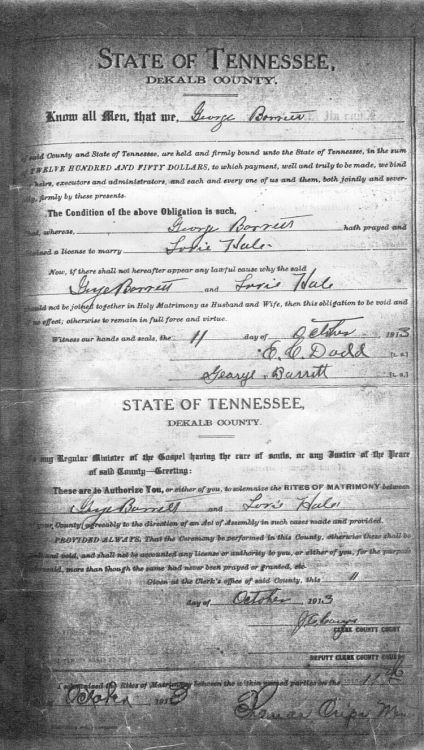 STATE OF TENNESSEE,
DEKALB COUNTY.
Know all Men, that we, George Barrett
of said County and State of Tennessee, are held and firmly bound unto the State of Tennessee, in the sum
TWELVE HUNDRED AND FIFTY DOLLARS, to which payment, well and truly to be made, we bind
heirs, executors and administrators, and each and every one of us and them, both jointly and sever-
ly, firmly by these presents.
The Condition of the above Obligation is such,
that, whereas, George Barrett hath prayed and
obtained a license to marry Hale
Now, if there shall not hereafter appear any lawful cause why the said
Barrett and Hale
should not be joined together in Holy Matrimony as Husband and Wife, then this obligation to be void and
no effect; otherwise to remain in full force and virtue.
Witness our hands and seals, the 11 day of October 1913
E. C. Dodd [L. S.]
George Barrett [L. S.]
STATE OF TENNESSEE,
DEKALB COUNTY.
any Regular Minister of the Gospel having the care of souls, or any Justice of the Peace
of said County—Greeting:
These are to Authorize You, or either of you, to solemnize the RITES OF MATRIMONY between
Barrett and Hale
your County agreeably to the direction of an Act of Assembly in such cases made and provided.
PROVIDED ALWAYS, That the Ceremony be performed in this County, otherwise these shall be
null and void, and shall not be accounted any license or authority to you, or either of you, for the purpose
said, more than though the same had never been prayed or granted, etc.
Given at the Clerk's office of said County, this 11
day of October 1913
CLERK COUNTY COURT
DEPUTY CLERK COUNTY COURT
I solemnized the Rites of Matrimony between the within named parties on the 11th
October 1913